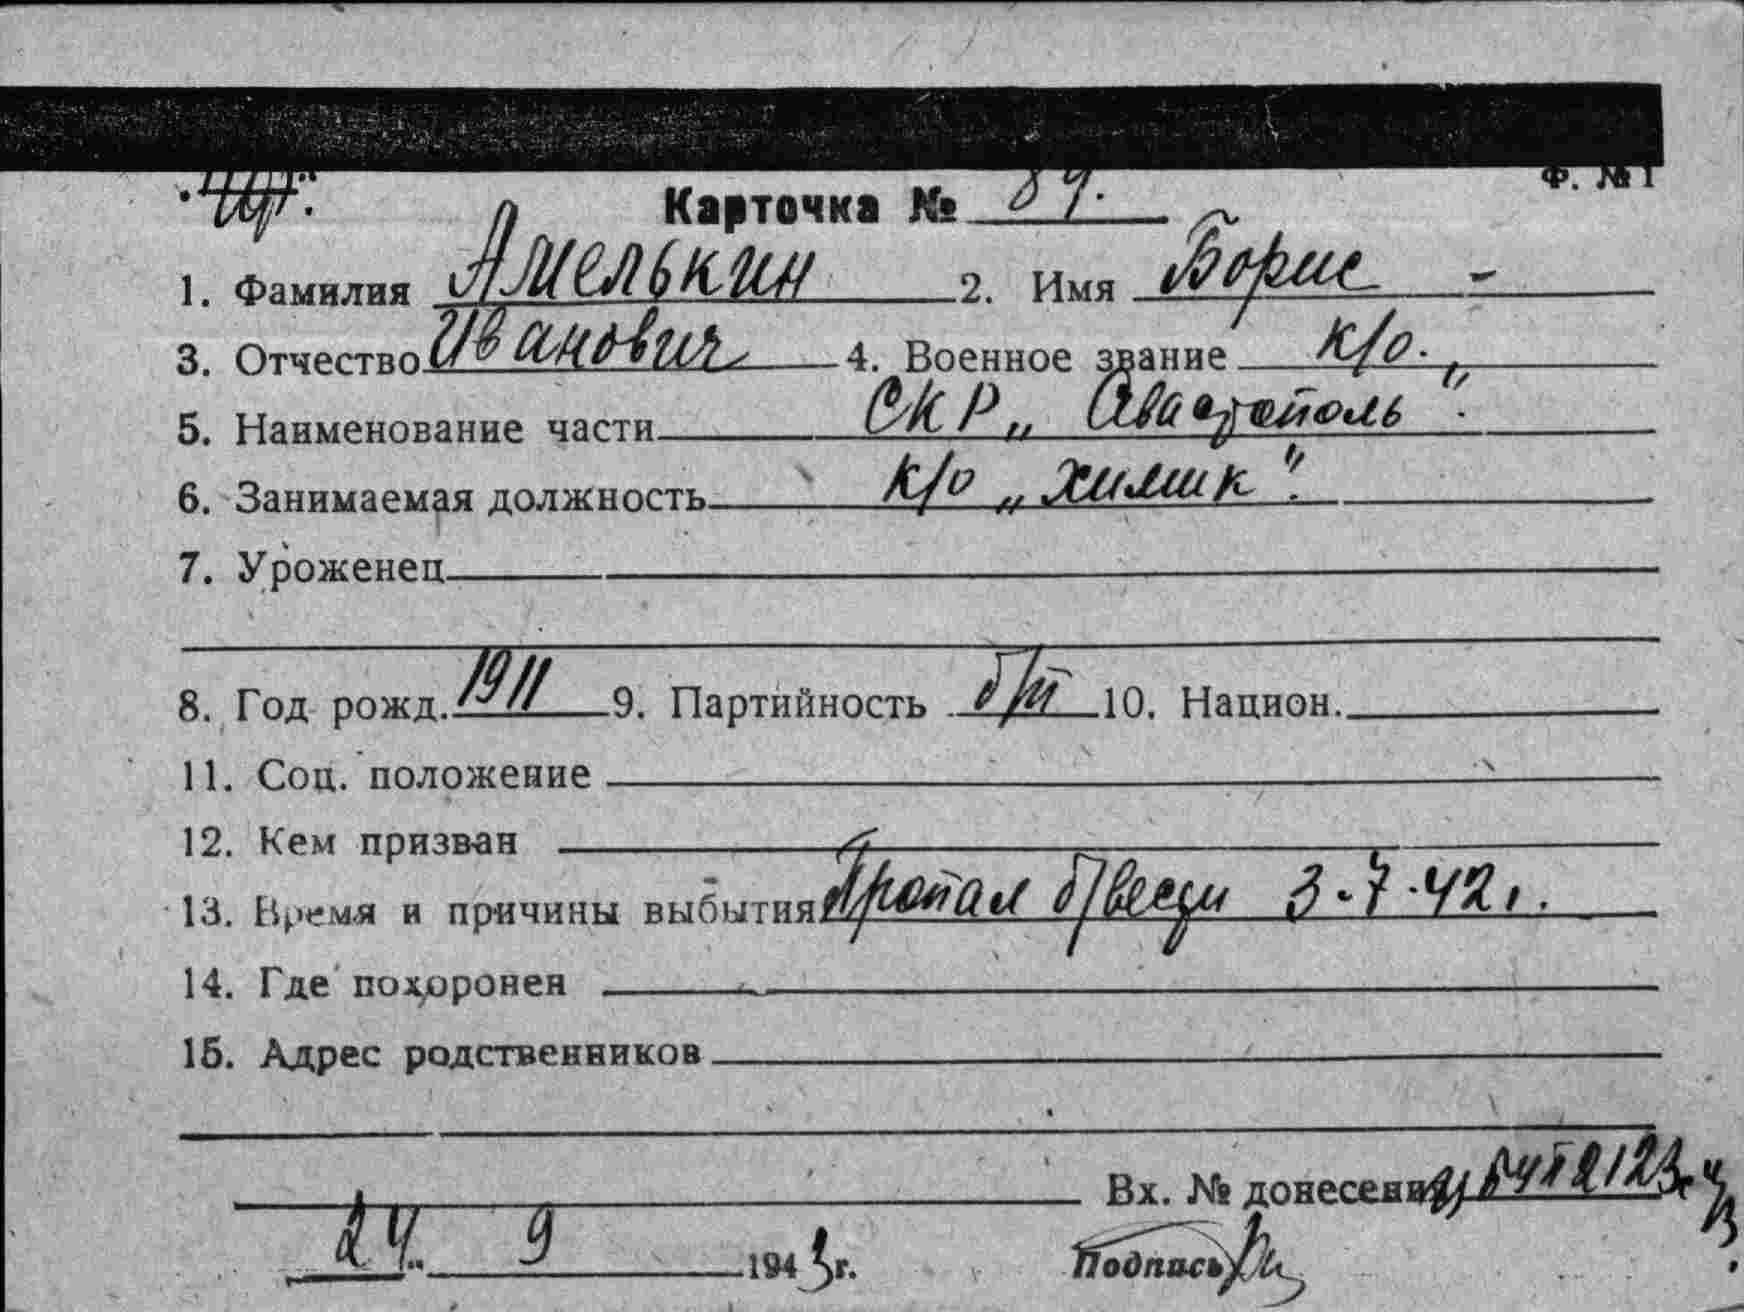 Ф. № 1
Карточка № 89.
1. Фамилия Амелькин 2. Имя Борис -
3. Отчество Иванович 4. Военное звание к/о.
5. Наименование части СКР „
6. Занимаемая должность к/о „химик".
7. Уроженец
8. Год рожд. 1911 9. Партийность б/п 10. Национ.
11. Соц. положение
12. Кем призван
13. Время и причины выбытия Пропал б/вести 3-7-42г.
14. Где похоронен
15. Адрес родственников
Вх. № донесения
24. 9 1943 г. Подпись